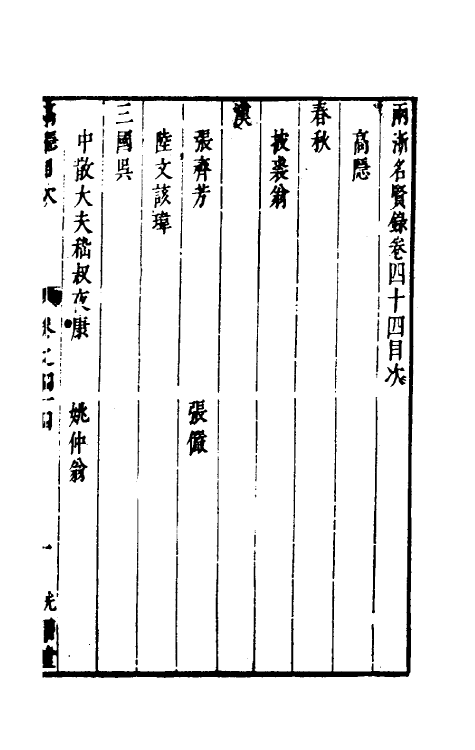 兩浙名賢錄卷四十四目次
高隱
春秋
披裘翁
漢
張齊芳 張儆
陸文該瑋
三國吳
中散大夫嵇叔夜康 姚仲翁
高隱目次 卷之四十四 一 光